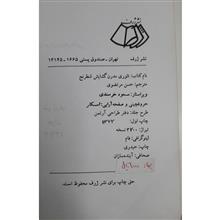 نشر ژرف
تهران - صندوق پستی ۱۶۶۵ - ۱۳۱۴۵
نام کتاب: تئوری مدرن گشایش شطرنج
مترجم: حسن مرتضوی
ویراستار: مسعود خرسندی
حروفچینی و صفحه‌آرایی: گستکار
طرح جلد: دفتر طراحی آرتمن
چاپ اول: ۱۳۷۳
تیراژ: ۳۰۰۰ نسخه
لیتوگرافی: فام
چاپ: حیدری
صحافی: آینده‌سازان
حق چاپ برای نشر ژرف محفوظ است.